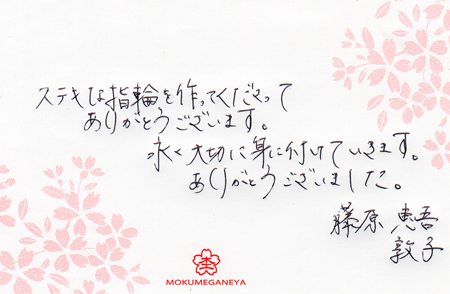 ステキな指輪を作ってくださって
ありがとうございます。
永く大切に身に付けていきます。
ありがとうございました。
藤原 恵吾
敦子
杢
MOKUMEGANEYA